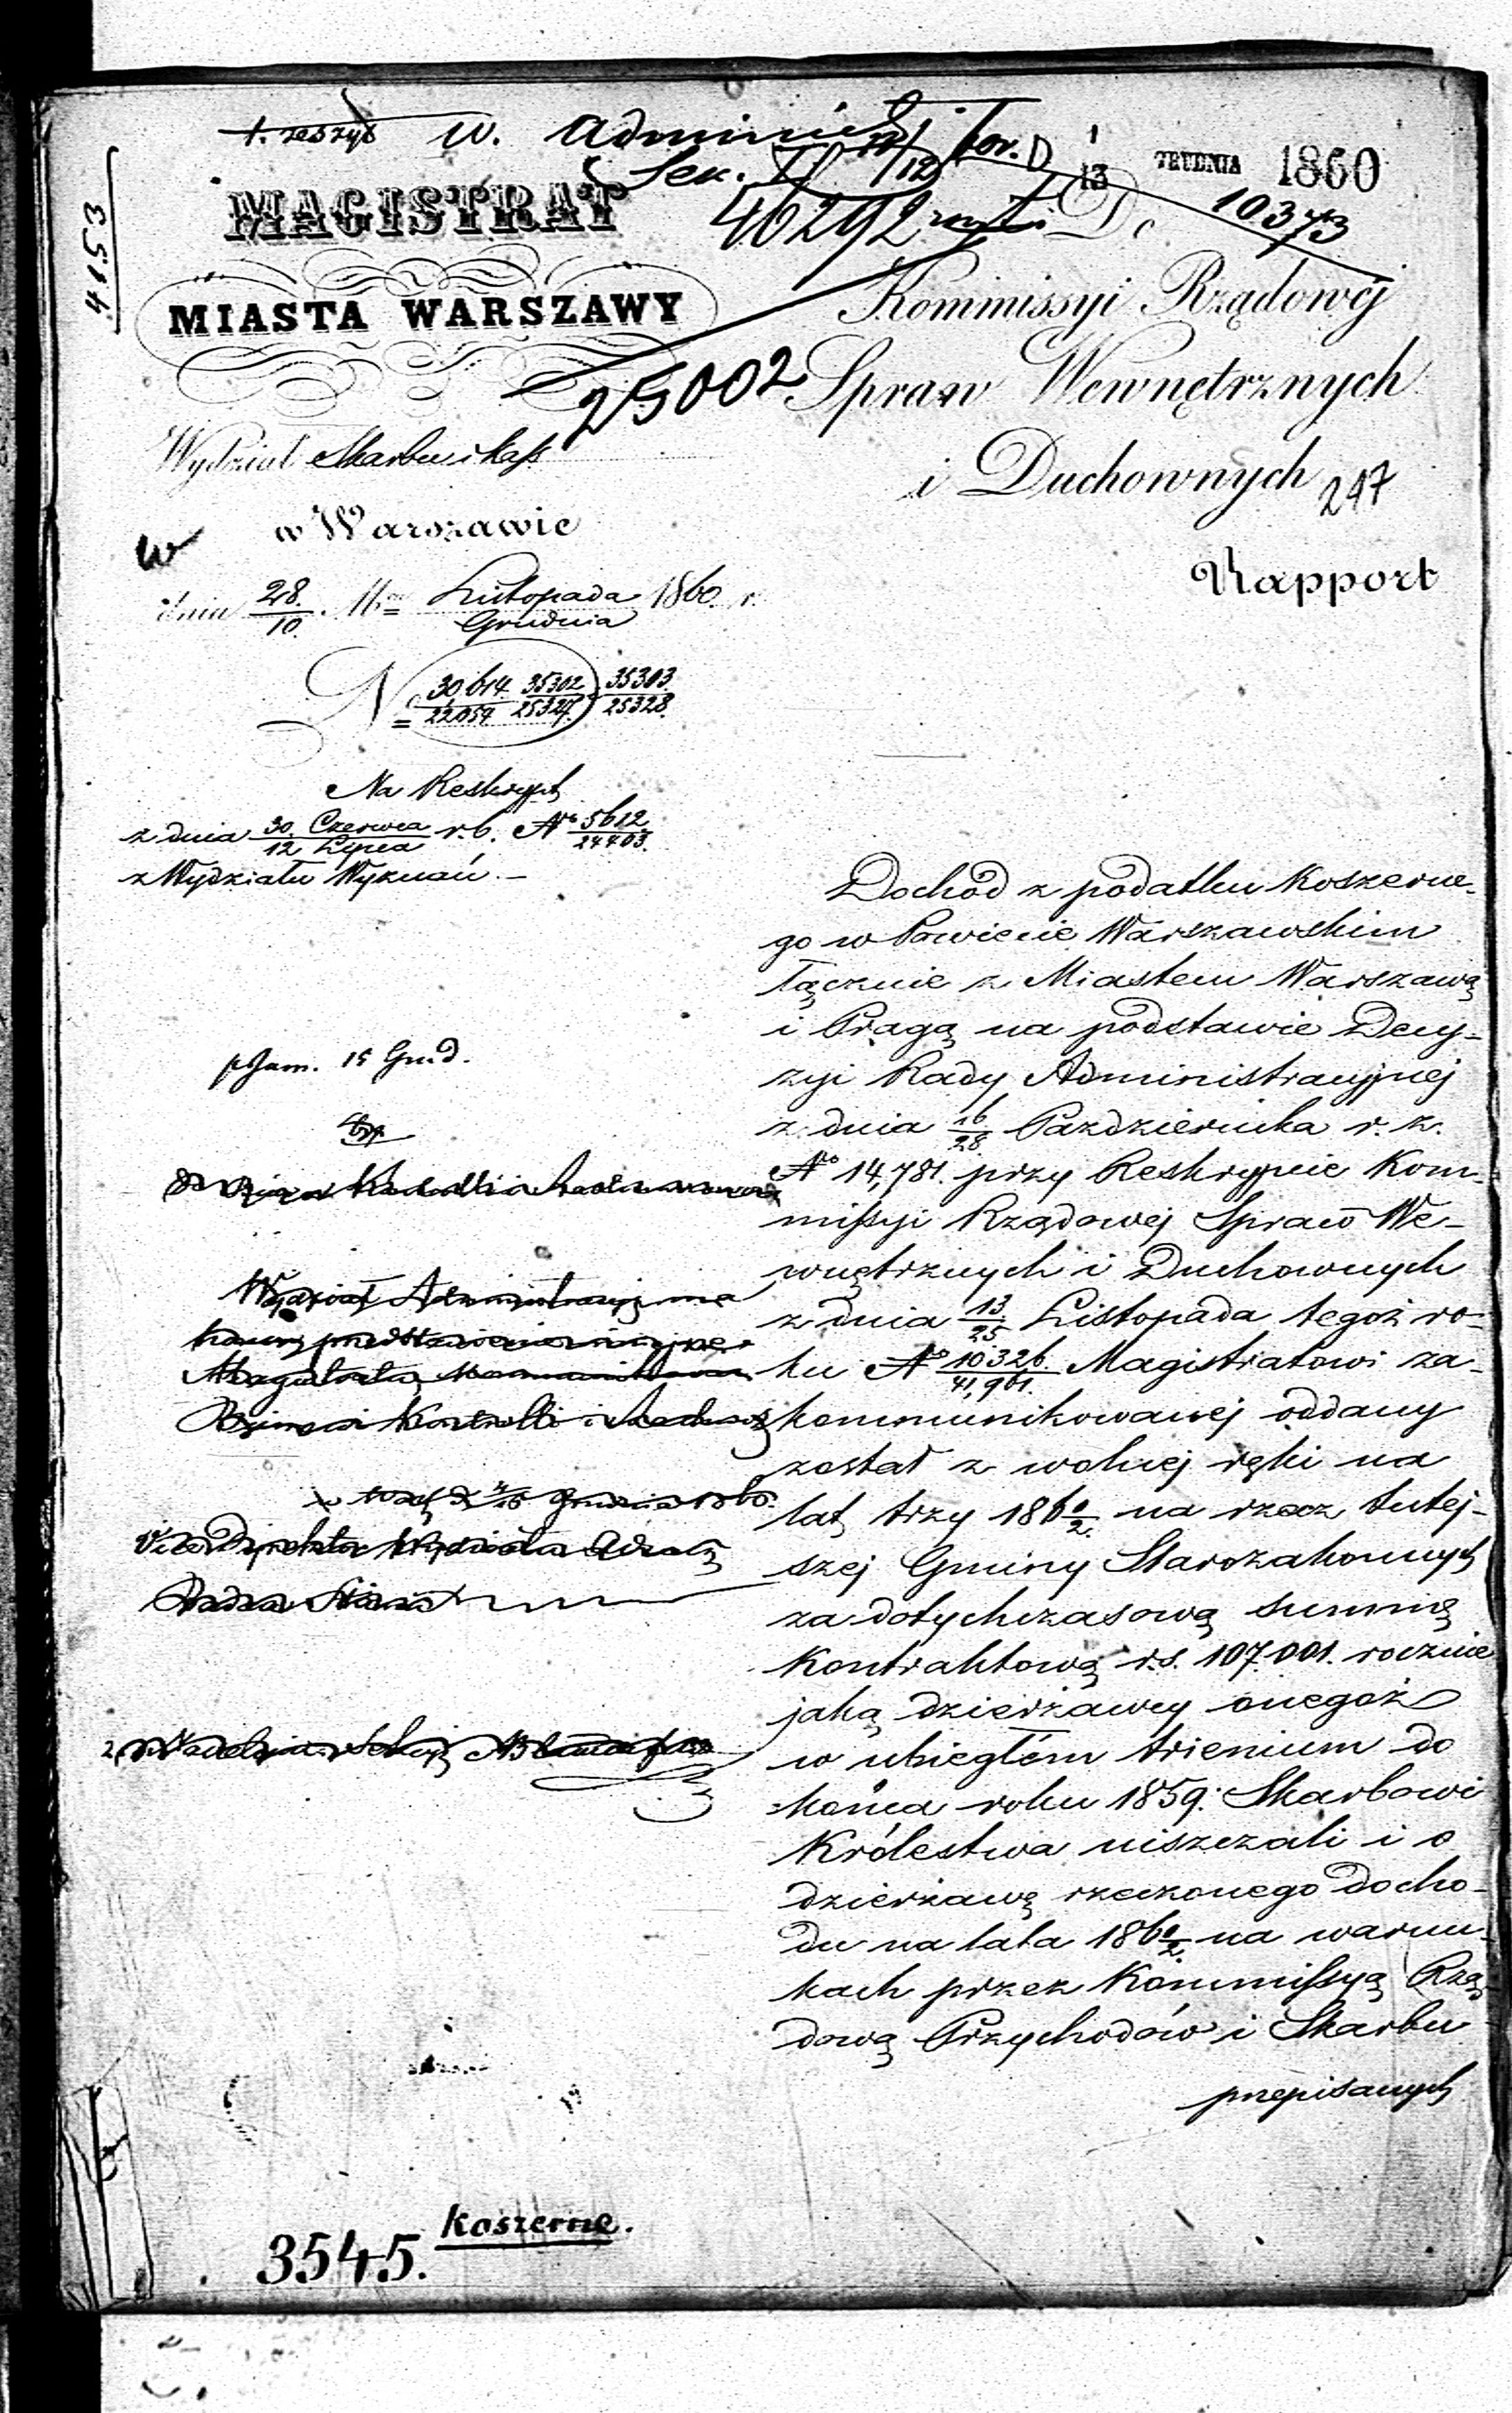 1. zeszyt W. Administ
Sek. II 17/12 1 GRUDNIA 1860
13
10373
4153
MAGISTRAT
46292 Do
MIASTA WARSZAWY
Kommissyi Rządowéj
25002 Spraw Wewnętrznych
Wydział Skarbu i Kass
i Duchownych 247
w Warszawie
Rapport
dnia 28/10 Listopada/Grudnia 1860 r.
N 30,614/22,059 35302/25327 35303/25328
Na Reskrypt
z dnia 30 Czerwca/12 Lipca r. b. Nro 5612/24403
z Wydziału Wyznań.—
15 Grud.
Wydział Administracyjny
Magistratu
Grudnia 1860
Dochód z podatku Koszerne-
go w Powiecie Warszawskim
łącznie z Miastem Warszawą
i Pragą na podstawie Decy-
zyi Rady Administracyjnej
z dnia 16/28 Pazdziernika r. z.
Nro 14,781. przy Reskrypcie Kom-
missyi Rządowej Spraw We-
wnętrznych i Duchownych
z dnia 13/25 Listopada tegoż ro-
ku No 10326/41,961. Magistratowi za-
kommunikowanej oddany
został z wolnej ręki na
lat trzy 1860/2 na rzecz tutej-
szej Gminy Starozakonnych
za dotychczasową summę
Kontraktową r.s. 107.001. rocznie
jaką dzierżawcy onegoż
w ubiegłem trienium do
końca roku 1859. Skarbowi
Królestwa uiszczali i o
dzierżawę rzeczonego docho-
du na lata 1860/2 na warun-
kach przez Kommissyą Rzą-
dową Przychodów i Skarbu
przepisanych
Koszerne.
3545.